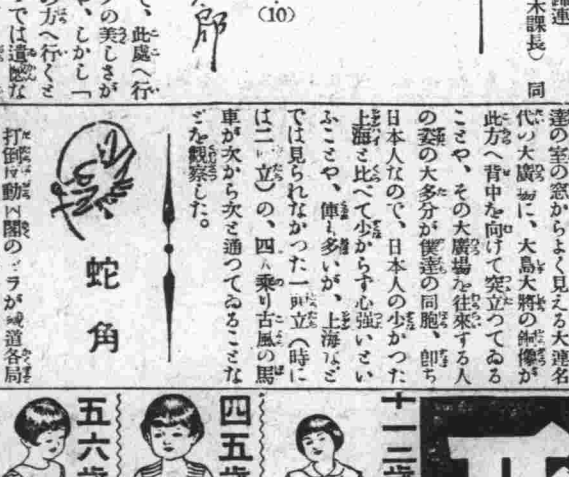 木課長）同
（10）
郎
て、此處へ行
の美しさが
、しかし「
の方へ行くと
では遺憾な
達の室の窓からよく見える大連名
代の大廣場に、大島大將の銅像が
此方へ背中を向けて突立つてゐる
ことや、その大廣場を往來する人
の姿の大多分が僕達の同胞、卽ち
日本人なので、日本人の少かつた
上海と比べて少からず心強いとい
ふことや、俥も多いが、上海など
では見られなかつた一頭立（時に
は二頭立）の、四人乘り古風の馬
車が次から次と通つてゐることな
どを觀察した。
蛇角
打倒反動內閣のビラが鐵道各局
十一二歲
四五歲
五六歲